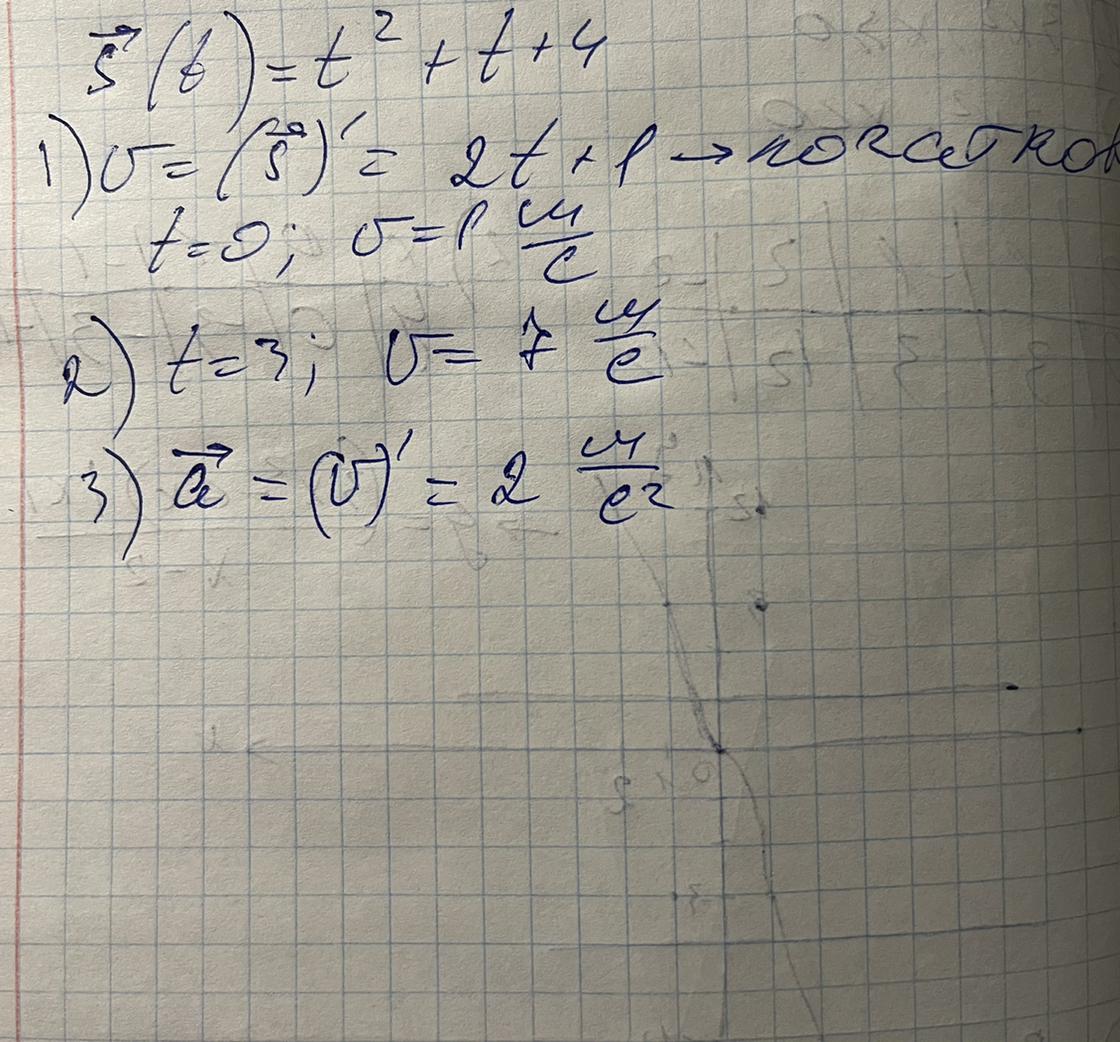 s⃗(t) = t² + t + 4
1) υ = (s⃗)' = 2t + 1 → початков
t = 0; υ = 1 м/с
2) t = 3; υ = 7 м/с
3) a⃗ = (υ)' = 2 м/с²